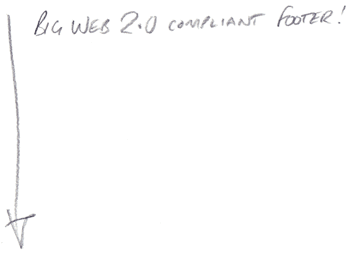 BIG WEB 2.0 COMPLIANT FOOTER!